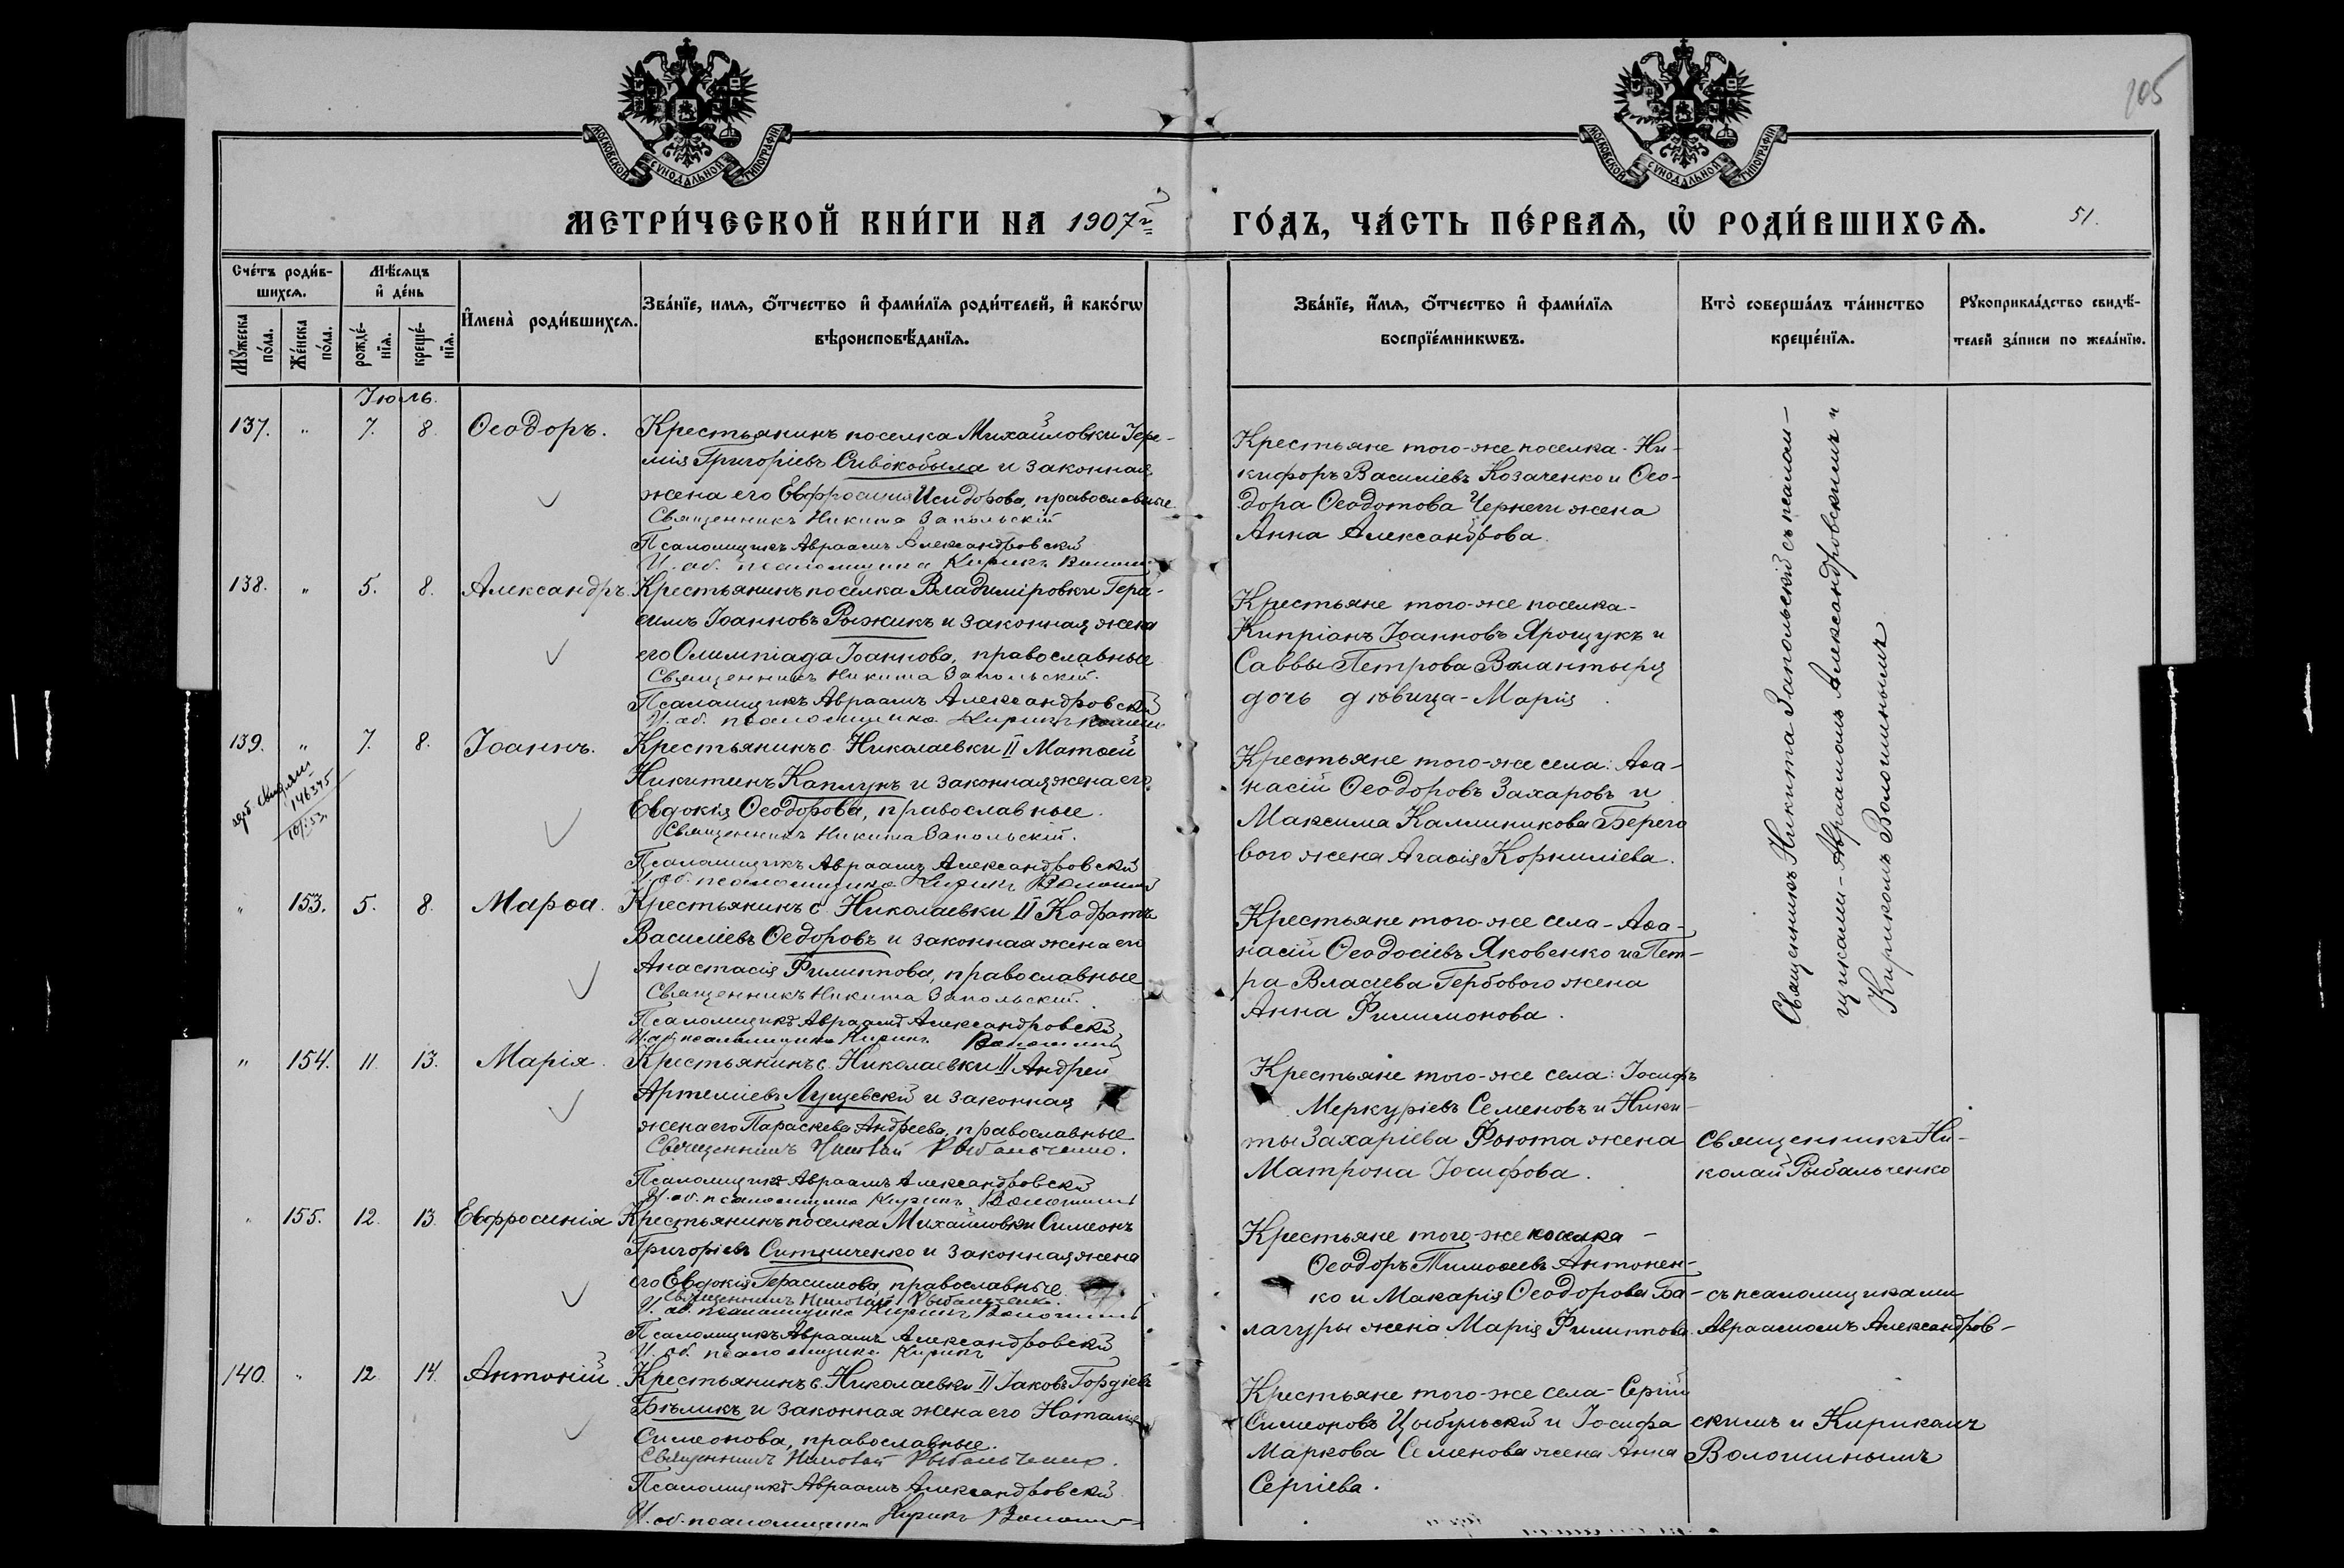 105
МОСКОВСКОЙ СѴНОДАЛЬНОЙ ТИПОГРАФІИ
МОСКОВСКОЙ СѴНОДАЛЬНОЙ ТИПОГРАФІИ
МЕТРИ́ЧЕСКОЙ КНИ́ГИ НА 1907 й
ГО́ДЪ, ЧА́СТЬ ПЕ́РВАѦ, Ѡ҆ РОДИ́ВШИХСѦ.
51.
Счéтъ роди́в-
шихсѧ.
Мѣ́сѧцъ
и҆ де́нь
Мꙋ́жеска
по́ла.
Же́нска
по́ла.
рожде́-
нїѧ.
креще́-
нїѧ.
И҆мена̀ роди́вшихсѧ.
Зва́нїе, имѧ, ѻ҆́тчество и҆ фами́лїѧ роди́телей, и҆ како́гѡ
вѣроисповѣ́данїѧ.
Зва́нїе, и҆́мѧ, ѻ҆́тчество и҆ фами́лїѧ
воспрїе́мникѡвъ.
Кто̀ соверша́лъ та́инство
креще́нїѧ.
Рꙋкоприкла́дство свидѣ́-
телей за́писи по жела́нїю.
Іюль.
137. " 7. 8. Ѳеодоръ.
Крестьянинъ поселка Михайловки Іере-
мія Григоріевъ Сивокобыла и законная
жена его Евфросинія Исидорова, православные
Священникъ Никита Запольскій
Псаломщикъ Авраамъ Александровскій
И. об. псаломщика Кирикъ Волошин
Крестьяне того-же поселка - Ни-
кифоръ Василіевъ Козаченко и Ѳео-
дора Ѳеодотова Чернеги жена
Анна Александрова.
138. " 5. 8. Александръ.
Крестьянинъ поселка Владиміровки Гера-
симъ Іоанновъ Рыжикъ и законная жена
его Олимпіада Іоаннова, православные
Священникъ Никита Запольскій.
Псаломщикъ Авраамъ Александровскій
И. об. псаломщика Кирикъ
Крестьяне того-же поселка -
Кипріанъ Іоанновъ Ярощукъ и
Саввы Петрова Валантыря
дочь дѣвица - Марія.
139. " 7. 8. Іоаннъ.
146345
10/I.53.
Крестьянинъ с. Николаевки II Матѳей
Никитинъ Каплунъ и законная жена его
Евдокія Ѳеодорова, православные.
Священникъ Никита Запольскій.
Псаломщикъ Авраамъ Александровскій
И. об. псаломщика Кирикъ Волошин
Крестьяне того-же села: Аѳа-
насій Ѳеодоровъ Захаровъ и
Максима Каллиникова Берего
вого жена Агаѳія Корниліева.
" 153. 5. 8. Марѳа.
Крестьянинъ с. Николаевки II Кодратъ
Василіевъ Ѳедоровъ и законная жена его
Анастасія Филиппова, православные
Священникъ Никита Запольскій.
Псаломщикъ Авраамъ Александровскій
И. об. псаломщика Кирикъ Волошин
Крестьяне того-же села - Аѳа-
насій Ѳеодосіевъ Яковенко и Пет-
ра Власіева Гербового жена
Анна Филимонова.
Священникъ Никита Запольскій съ псалом-
щиками - Авраамомъ Александровскимъ и
Кирикомъ Волошинымъ
" 154. 11. 13. Марія.
Крестьянинъ с. Николаевки II Андрей
Артеміевъ Лущевскій и законная
жена его Параскева Андреева, православные
Священникъ Николай Рыбальченко.
Псаломщикъ Авраамъ Александровскій
И. об. псаломщика Кирикъ Волошинъ
Крестьяне того-же села: Іосифъ
Меркуріевъ Семеновъ и Ники-
ты Захаріева Фьюта жена
Матрона Іосифова.
Священникъ Ни-
колай Рыбальченко
" 155. 12. 13. Евфросинія
Крестьянинъ поселка Михайловки Симеонъ
Григоріевъ Ситниченко и законная жена
его Евдокія Герасимова, православные.
Священникъ Николай Рыбальченко.
И. об. псаломщика Кирикъ Волошинъ
Псаломщикъ Авраамъ Александровскій
И. об. псаломщика Кирикъ
Крестьяне того-же поселка -
Ѳеодоръ Тимоѳеевъ Антонен-
ко и Макарія Ѳеодорова Ба-
лагуры жена Марія Филиппова.
съ псаломщиками
Авраамомъ Александров-
140. " 12. 14. Антоній.
Крестьянинъ с. Николаевки II Іаковъ Гордіевъ
Бѣликъ и законная жена его Наталія
Симеонова, православные.
Священникъ Николай Рыбальченко.
Псаломщикъ Авраамъ Александровскій
И. об. псаломщика Кирикъ Волошин
Крестьяне того-же села - Сергій
Симеоновъ Цыбульскій и Іосифа
Маркова Семенова жена Анна
Сергіева.
скимъ и Кирикомъ
Волошинымъ